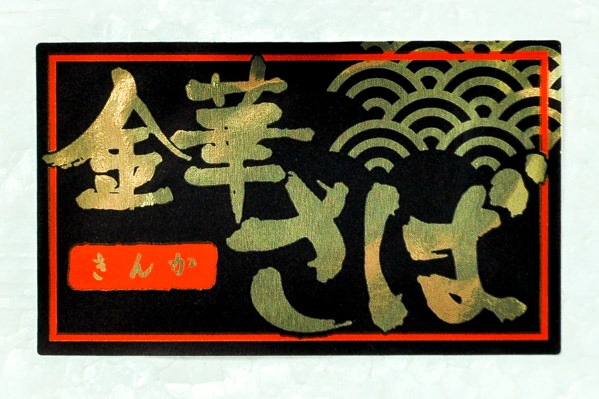 金華さば
きんか